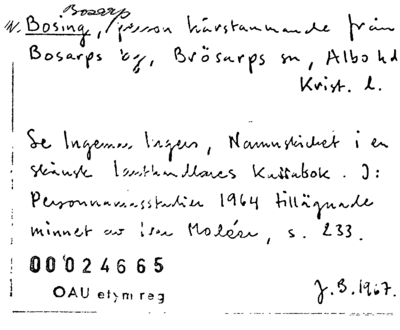 Bosarp
N. Bosing, person härstammande från
Bosarps by, Brösarps sn, Albo hd
Krist. l.
Se Ingemar Ingers, Namnskicket i en
skånsk lanthandlares Kassabok. I:
Personnamnsstudier 1964 tillägnade
minnet av Ivar Modéer, s. 233.
00024665
OAU etymreg
J.B. 1967.